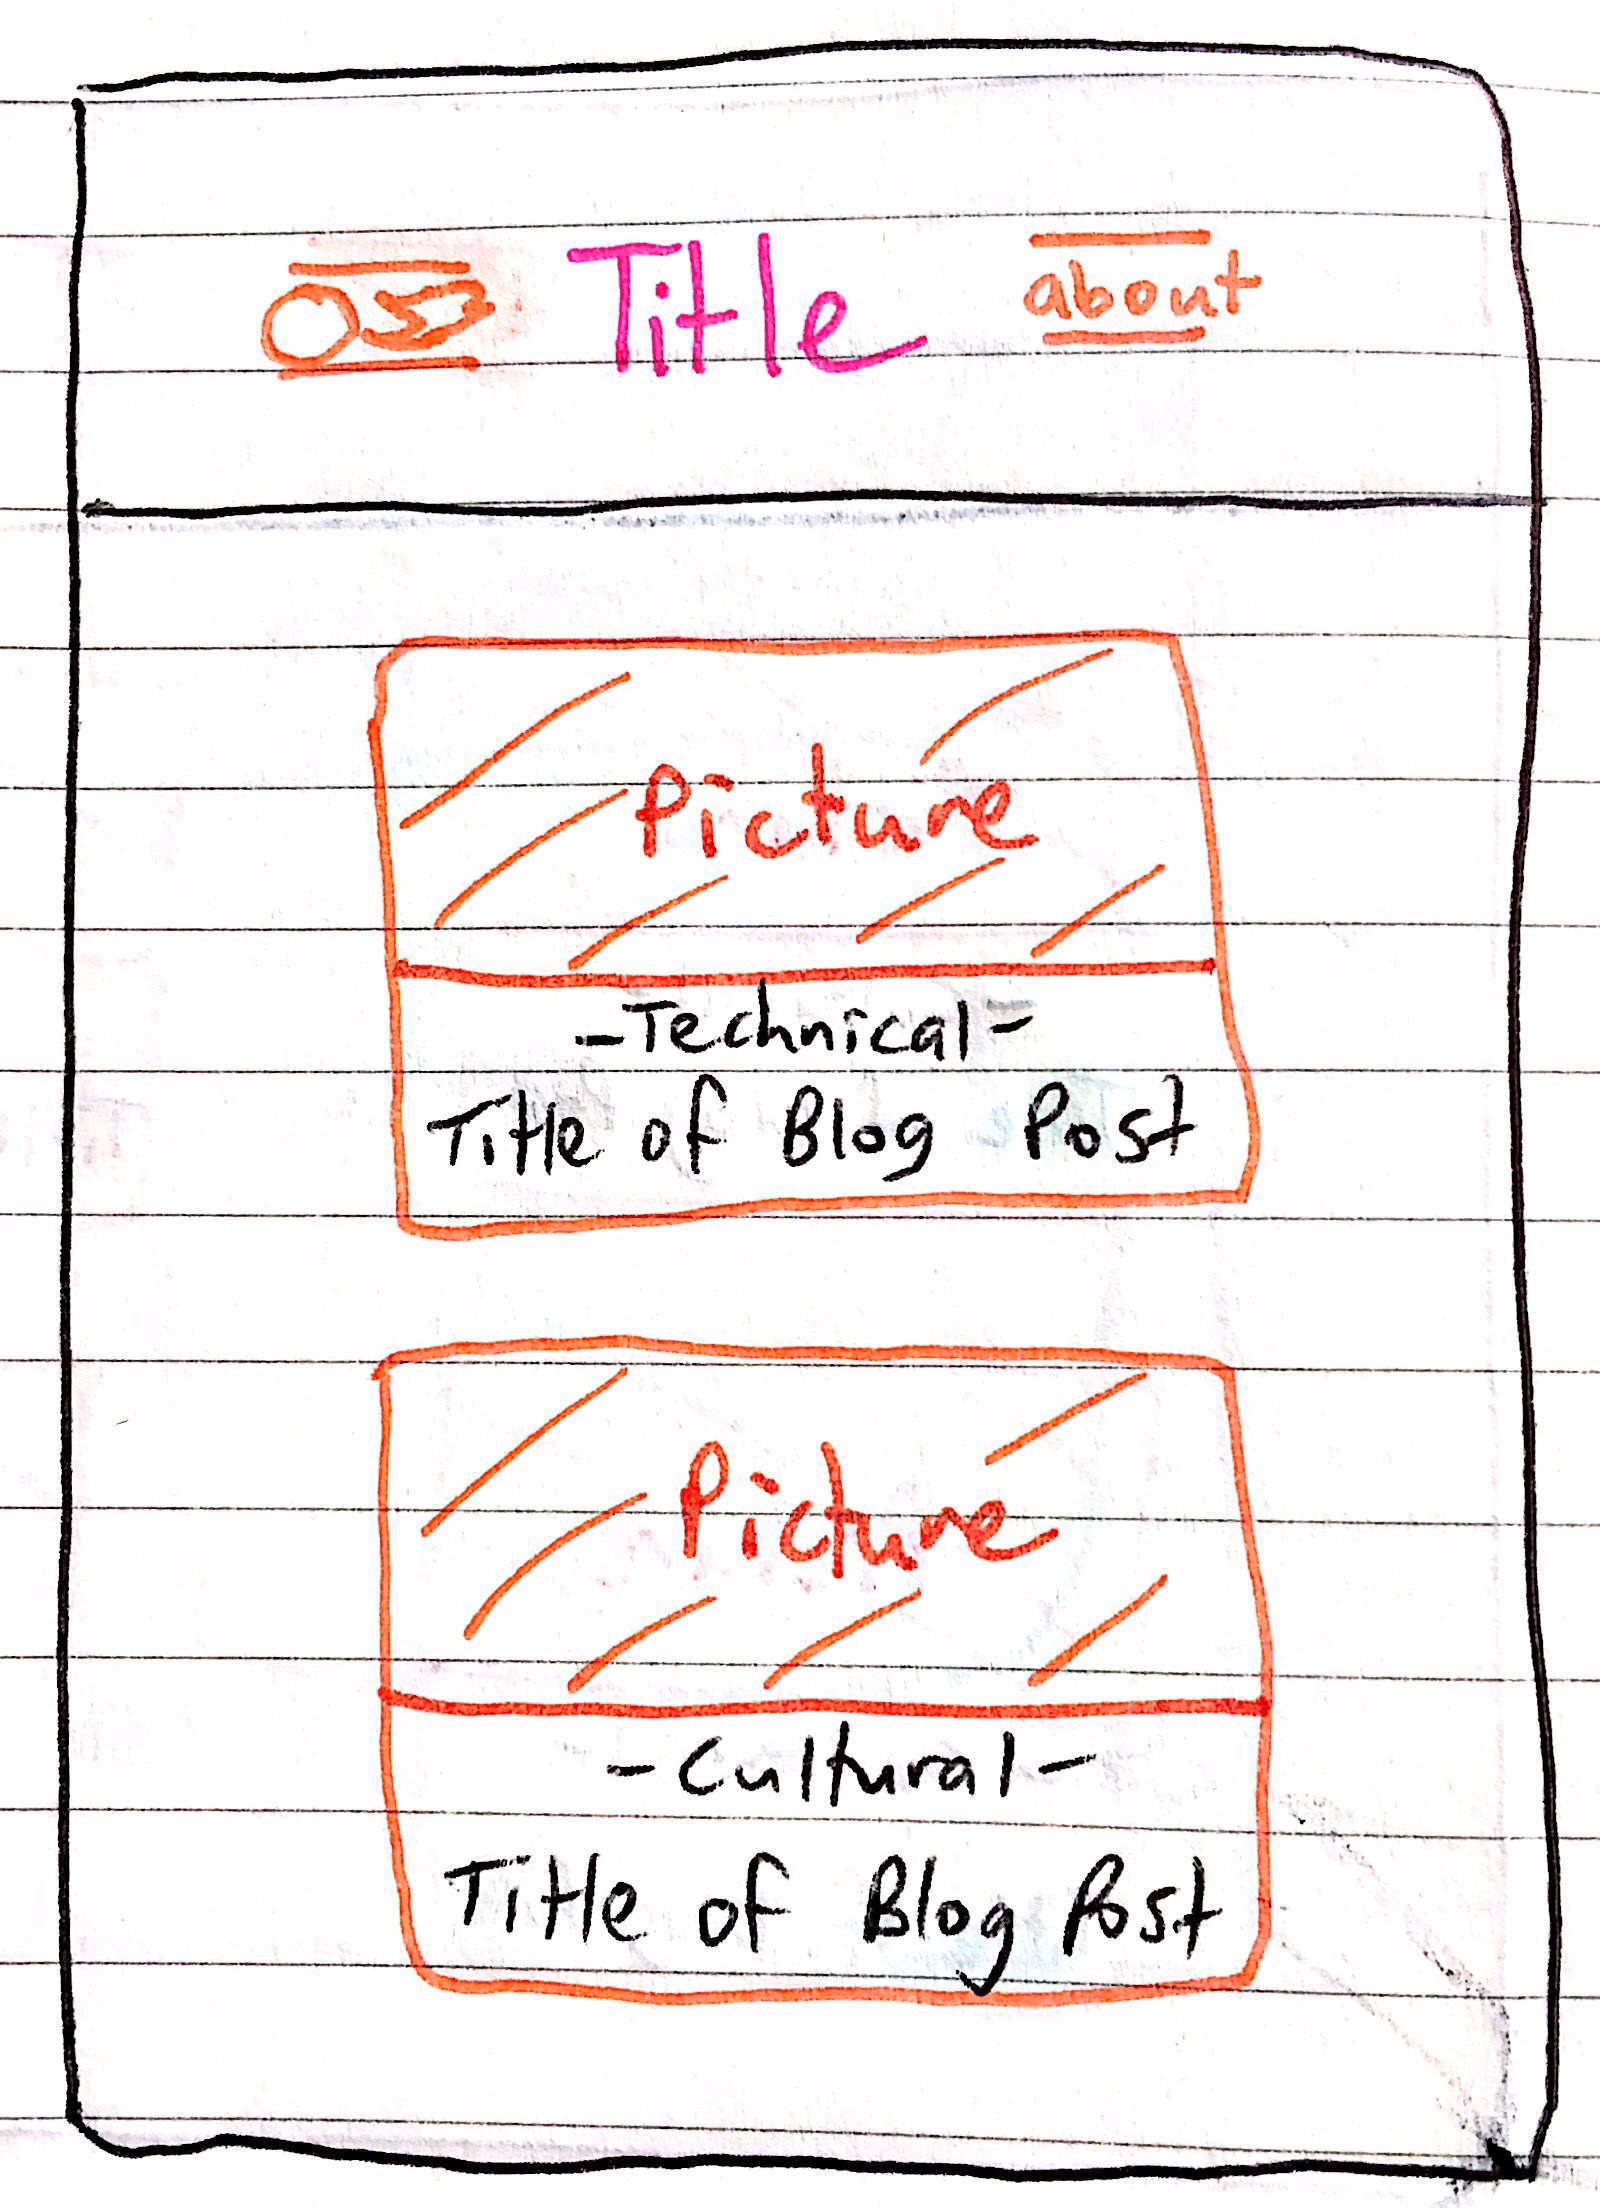 Title about
Picture
-Technical-
Title of Blog Post
Picture
-Cultural-
Title of Blog Post